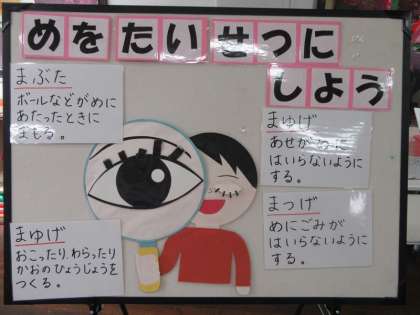 めをたいせつに
しよう
まぶた
ボールなどがめに
あたったときに
まもる。
まゆげ
あせが
はいらないように
する。
まゆげ
おこったり、わらったり
かおのひょうじょうを
つくる。
まつげ
めにごみが
はいらないように
する。